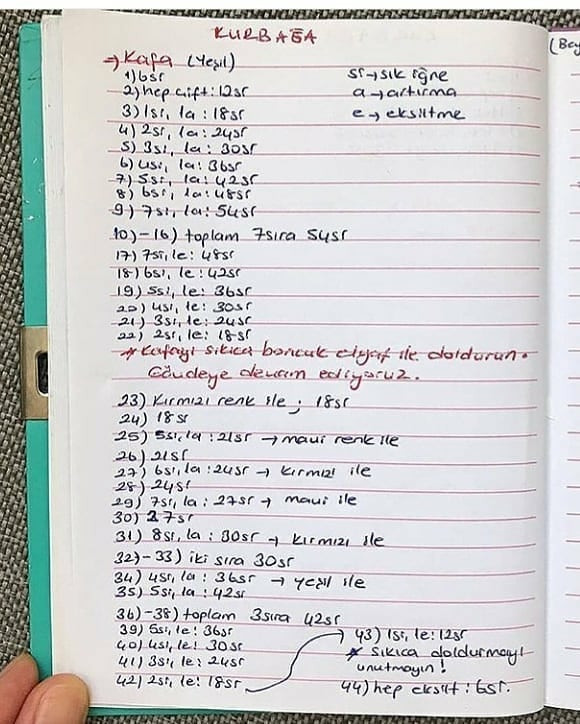 KURBAĞA
→ Kafa (Yeşil)
1) 6sr
2) hep çift: 12sr
3) 1sr, 1a : 18sr
4) 2sr, 1a : 24sr
5) 3sr, 1a : 30sr
6) 4sr, 1a : 36sr
7) 5sr, 1a : 42sr
8) 6sr, 1a : 48sr
9) 7sr, 1a : 54sr
sr → sık iğne
a → artırma
e → eksiltme
10)-16) toplam 7sıra 54sr
17) 7sr, 1e : 48sr
18) 6sr, 1e : 42sr
19) 5sr, 1e : 36sr
20) 4sr, 1e : 30sr
21) 3sr, 1e : 24sr
22) 2sr, 1e : 18sr
* Kafayı sıkıca boncuk elyaf ile doldurun.
Gövdeye devam ediyoruz.
23) Kırmızı renk ile ; 18sr
24) 18sr
25) 5sr, 1a : 21sr → mavi renk ile
26) 21sr
27) 6sr, 1a : 24sr → kırmızı ile
28) 24sr
29) 7sr, 1a : 27sr → mavi ile
30) 27sr
31) 8sr, 1a : 30sr → kırmızı ile
32)-33) iki sıra 30sr
34) 4sr, 1a : 36sr → yeşil ile
35) 5sr, 1a : 42sr
36)-38) toplam 3sıra 42sr
39) 5sr, 1e : 36sr
40) 4sr, 1e : 30sr
41) 3sr, 1e : 24sr
42) 2sr, 1e : 18sr
43) 1sr, 1e : 12sr
* Sıkıca doldurmayı
unutmayın!
44) hep eksilt : 6sr.